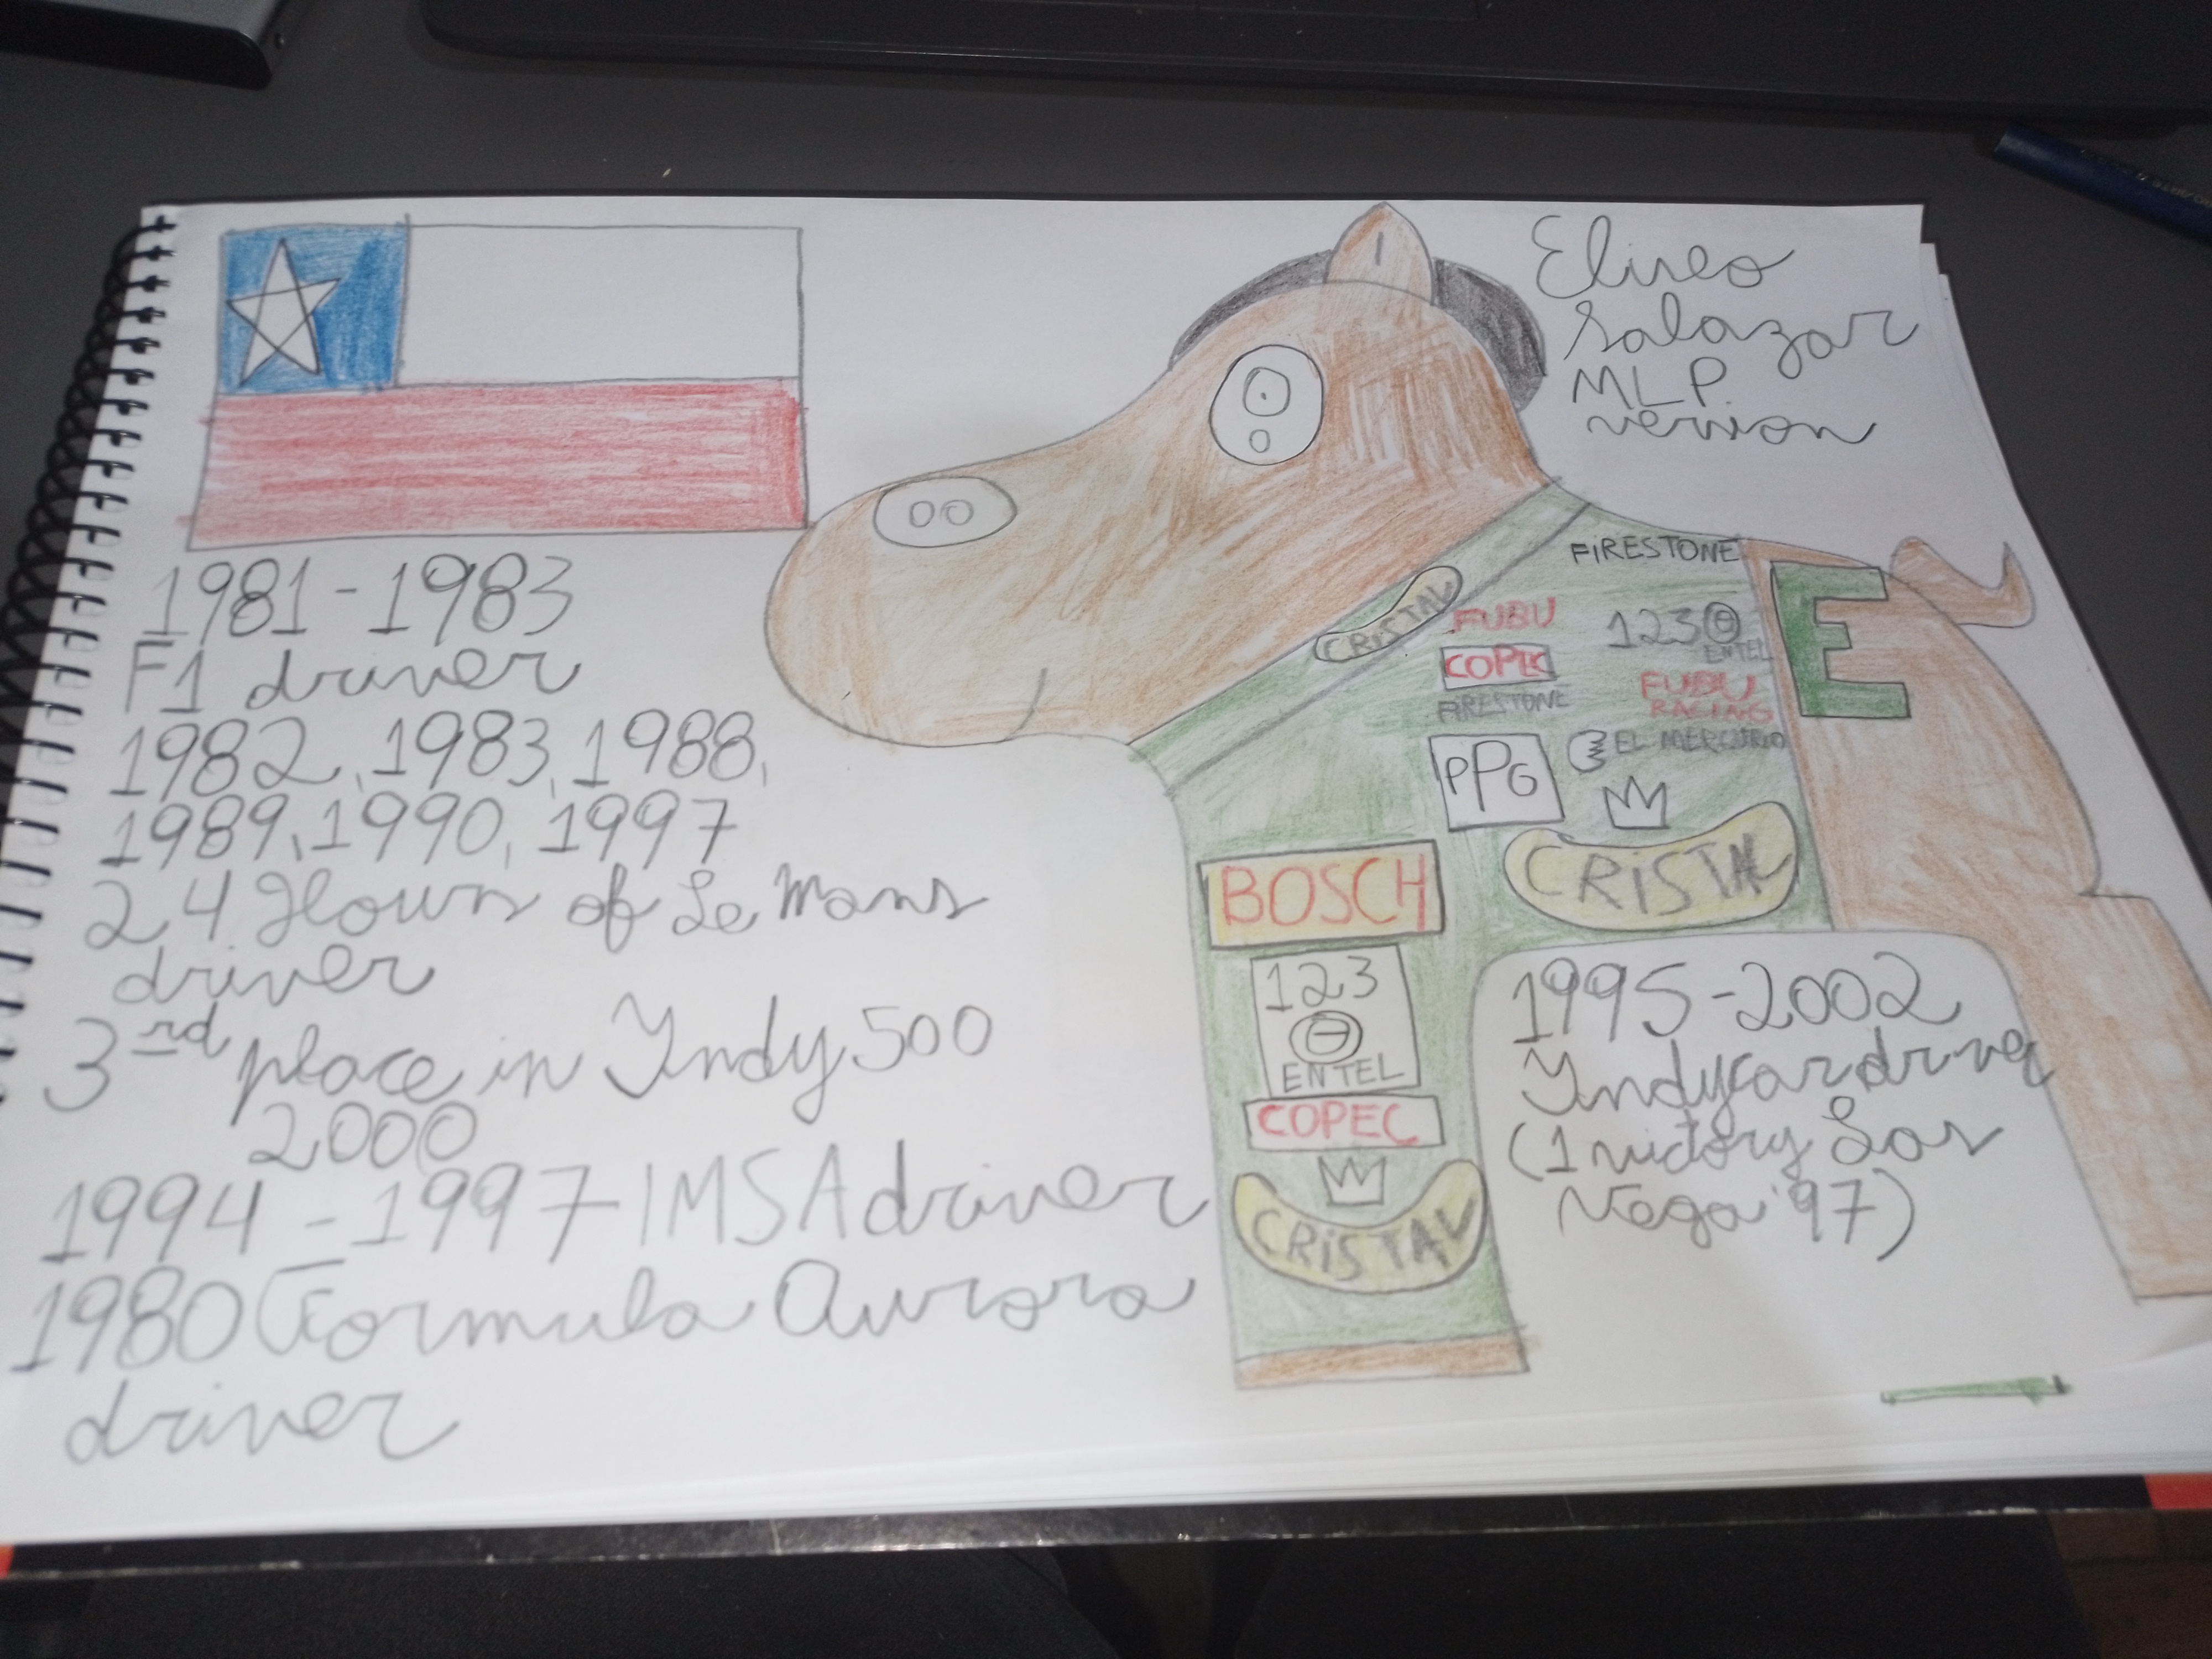 Eliseo
Salazar
MLP
version
1981-1983
F1 driver
1982, 1983, 1988,
1989, 1990, 1997
24 Hours of Le Mans
driver
3rd place in Indy 500
2000
1994-1997 IMSA driver
1980 Formula Aurora
driver
FIRESTONE
CRISTAL
FUBU
123
ENTEL
COPEC
FIRESTONE
FUBU
RACING
E
PPG
EL MERCURIO
CRISTAL
BOSCH
123
ENTEL
COPEC
CRISTAL
1995-2002
Indycar driver
(1 victory Las
Vega '97)